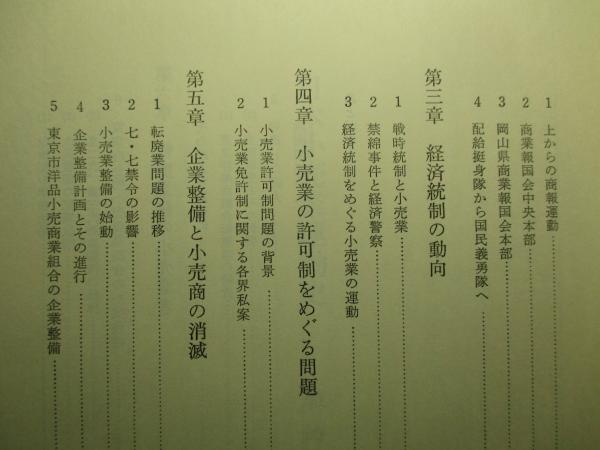 1 上からの商報運動
2 商業報国会中央本部
3 岡山県商業報国会本部
4 配給挺身隊から国民義勇隊へ
第三章 経済統制の動向
1 戦時統制と小売業
2 禁綿事件と経済警察
3 経済統制をめぐる小売業の運動
第四章 小売業の許可制をめぐる問題
1 小売業許可制問題の背景
2 小売業免許制に関する各界私案
第五章 企業整備と小売商の消滅
1 転廃業問題の推移
2 七・七禁令の影響
3 小売業整備の始動
4 企業整備計画とその進行
5 東京市洋品小売商業組合の企業整備